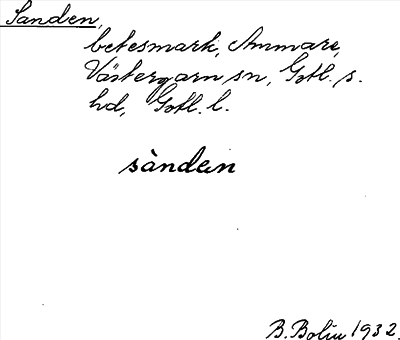 Sanden,
betesmark, Ammare,
Västergarn sn, Gotl. s.
hd, Gotl. l.
sànden
B. Bolin 1932.